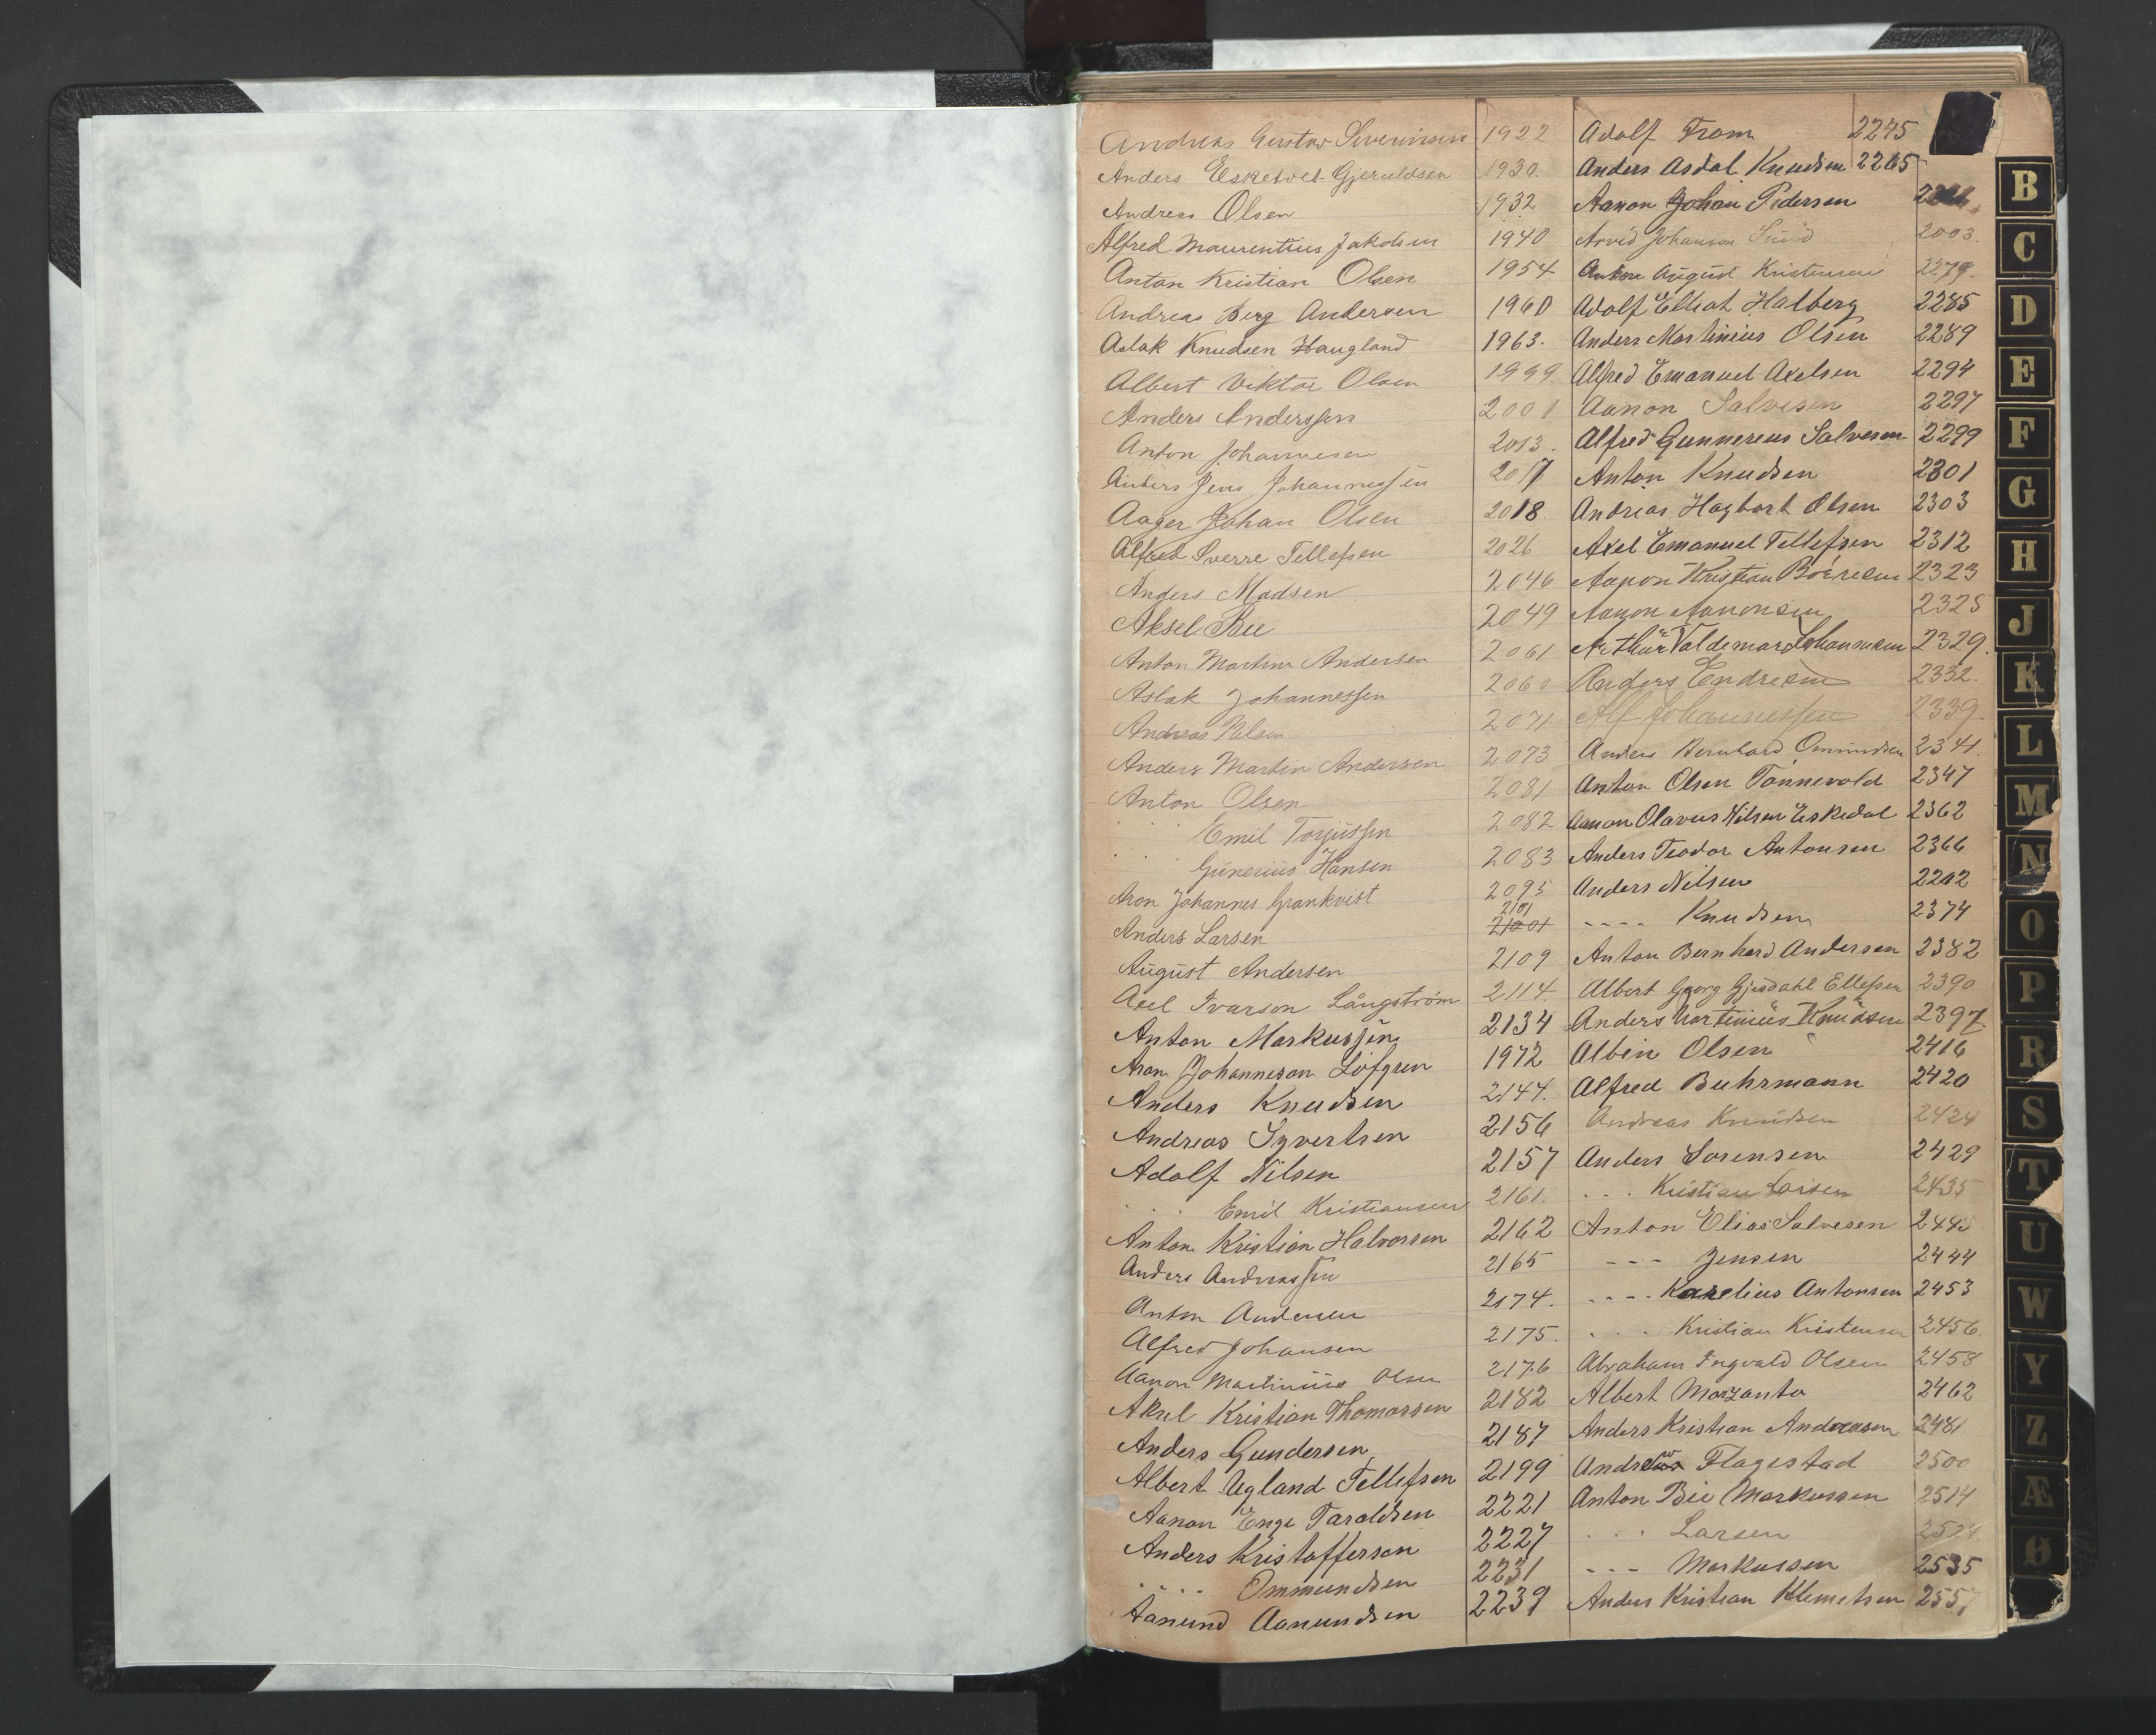 Andreas Gustav Severinsen 1922
Anders Eskedal Gjeruldsen 1930.
Andreas Olsen 1932
Alfred Maurentius Jakobsen 1940
Anton Kristian Olsen 1954
Andreas Berg Andersen 1960
Aslak Knudsen Haugland 1963.
Albert Viktor Olsen 1999
Anders Anderssen 2001
Anton Johannesen 2013.
Anders Jens Johannessen 2017
Aager Johan Olsen 2018
Alfred Sverre Tellefsen 2026
Anders Madsen 2046
Aksel Bie 2049
Anton Martin Andersen 2061
Aslak Johannessen 2060
Andreas Nilsen 2071
Anders Martin Andersen 2073
Anton Olsen 2081
. . . Emil Torjussen 2082
. . . Gunerius Hansen 2083
Aron Johannes Grankvist 2095
Anders Larsen 2101
August Andersen 2109
Axel Ivarson Långström 2114
Anton Markussen 2134
Aron Johanneson Löfgren 1972
Anders Knudsen 2144.
Andreas Syvertsen 2156
Adolf Nilsen 2157
. . . Emil Kristiansen 2161.
Anton Kristian Halvorsen 2162
Anders Andreassen 2165
Anton Andersen 2174.
Alfred Johansen 2175.
Aanon Martinius Olsen 2176
Aksel Kristian Thomassen 2182
Anders Gundersen 2187
Albert Ugland Tellefsen 2199
Aanon Enge Taraldsen 2221
Anders Kristofferson 2227
. . . . Ommundsen 2231
Aanund Aanundsen 2239
Adolf From 2275
Anders Asdal Knudsen 2265
Aanon Johan Pedersen
Arvid Johanson 2003.
Anton August Kristensen 2279.
Adolf Elliot Halberg 2285
Anders Martinius Olsen 2289
Alfred Emanuel Axelsen 2294
Aanon Salvesen 2297
Alfred Gunnereus Salvesen 2299
Anton Knudsen 2301
Andreas Hagbart Olsen 2303
Axel Emanuel Tellefsen 2312
Aanon Kristian Børresen 2323
Aanon Aanonsen 2325
Arthur Valdemar Johannesen 2329.
Anders Endresen 2332.
Alf Johannessen 2339.
Anders Bernhard Ommundsen 2341.
Anton Olsen Tønnevold 2347
Aanon Olavus Nilsen Eskedal 2362
Anders Teodor Antonsen 2366
Anders Nilsen 2202
---- Knudsen 2374
Anton Bernhard Andersen 2382
Albert Georg Gjesdahl Ellefsen 2390
Anders Martinius Knudsen 2397
Albin Olsen 2416
Alfred Buhrmann 2420
Andreas Knudsen 2424
Anders Sorensen 2429
. . . Kristian Larsen 2435
Anton Elias Salvesen
--- Jensen 2444
---- Karelius Antonsen 2453
. . . Kristian Kristensen 2456
Abraham Ingvald Olsen 2458
Albert Morzanto 2462
Anders Kristian Andreasen 2481
Andrew Flagestad 2500
Anton Bie Markussen 2514
. . . Larsen
--- Markussen 2535
Anders Kristian Klemetsen 2557
B
C
D
E
F
G
H
J
K
L
M
N
O
P
R
S
T
U
W
Y
Z
Æ
Ø